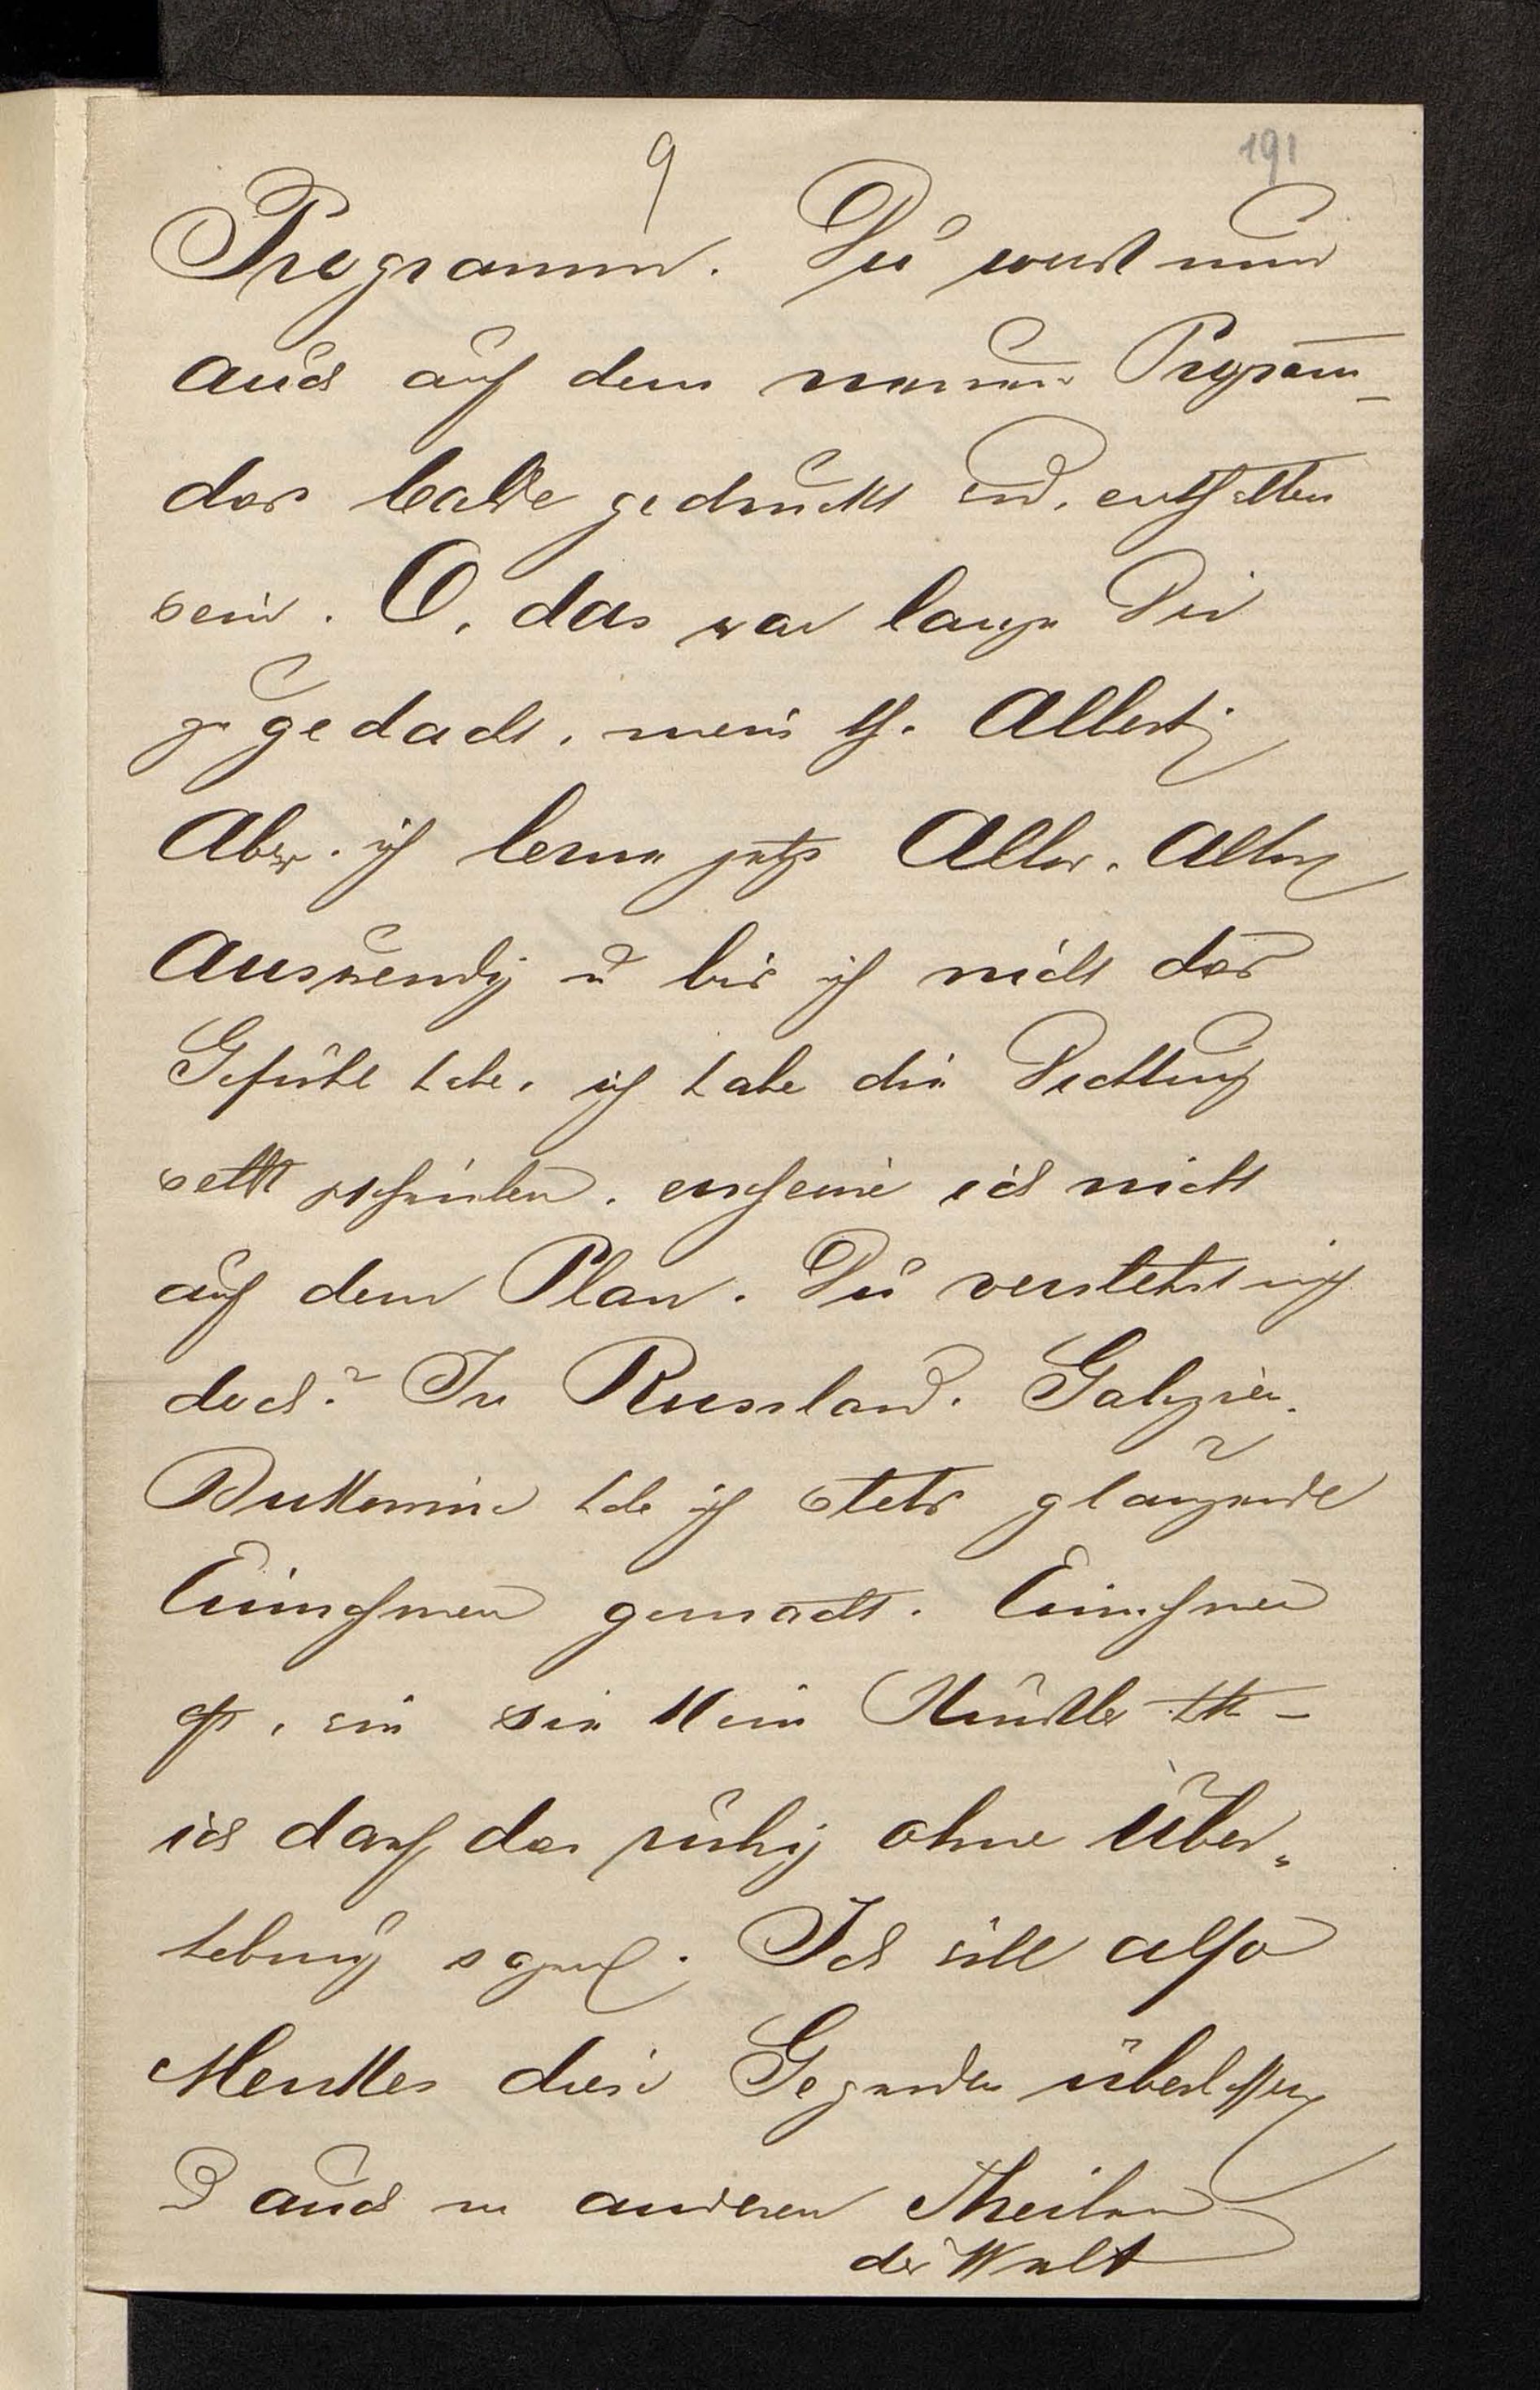 9
191
Programm. Du wirst nun
auch auf dem neuen Program̄
das balde gedruckt wird, enthalten
sein. O, das war lange Dir
zugedacht, mein th. Albert;
Aber, ich lerne jetzt Alles, Alles
auswendig u bis ich nicht das
Gefühl habe, ich habe die Dichtung
selbst geschrieben, erscheine ich nicht
auf dem Plan. Du verstehst mich
doch? In Russland, Galizien,
Bukkowina habe ich stets glänzende
Einnahmen gemacht. Einnahmen
oft, wie sie kein Künstler hatte –
ich darf das ruhig ohne Über„
hebung sagen. Ich will also
Menkes diese Gegenden überlassen
auch in anderen Theilen
der Welt